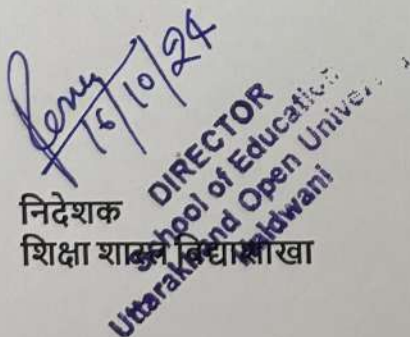 16/10/24
DIRECTOR
School of Education
Uttarakhand Open University
Haldwani
निदेशक
शिक्षा शास्त्र विद्याशाखा